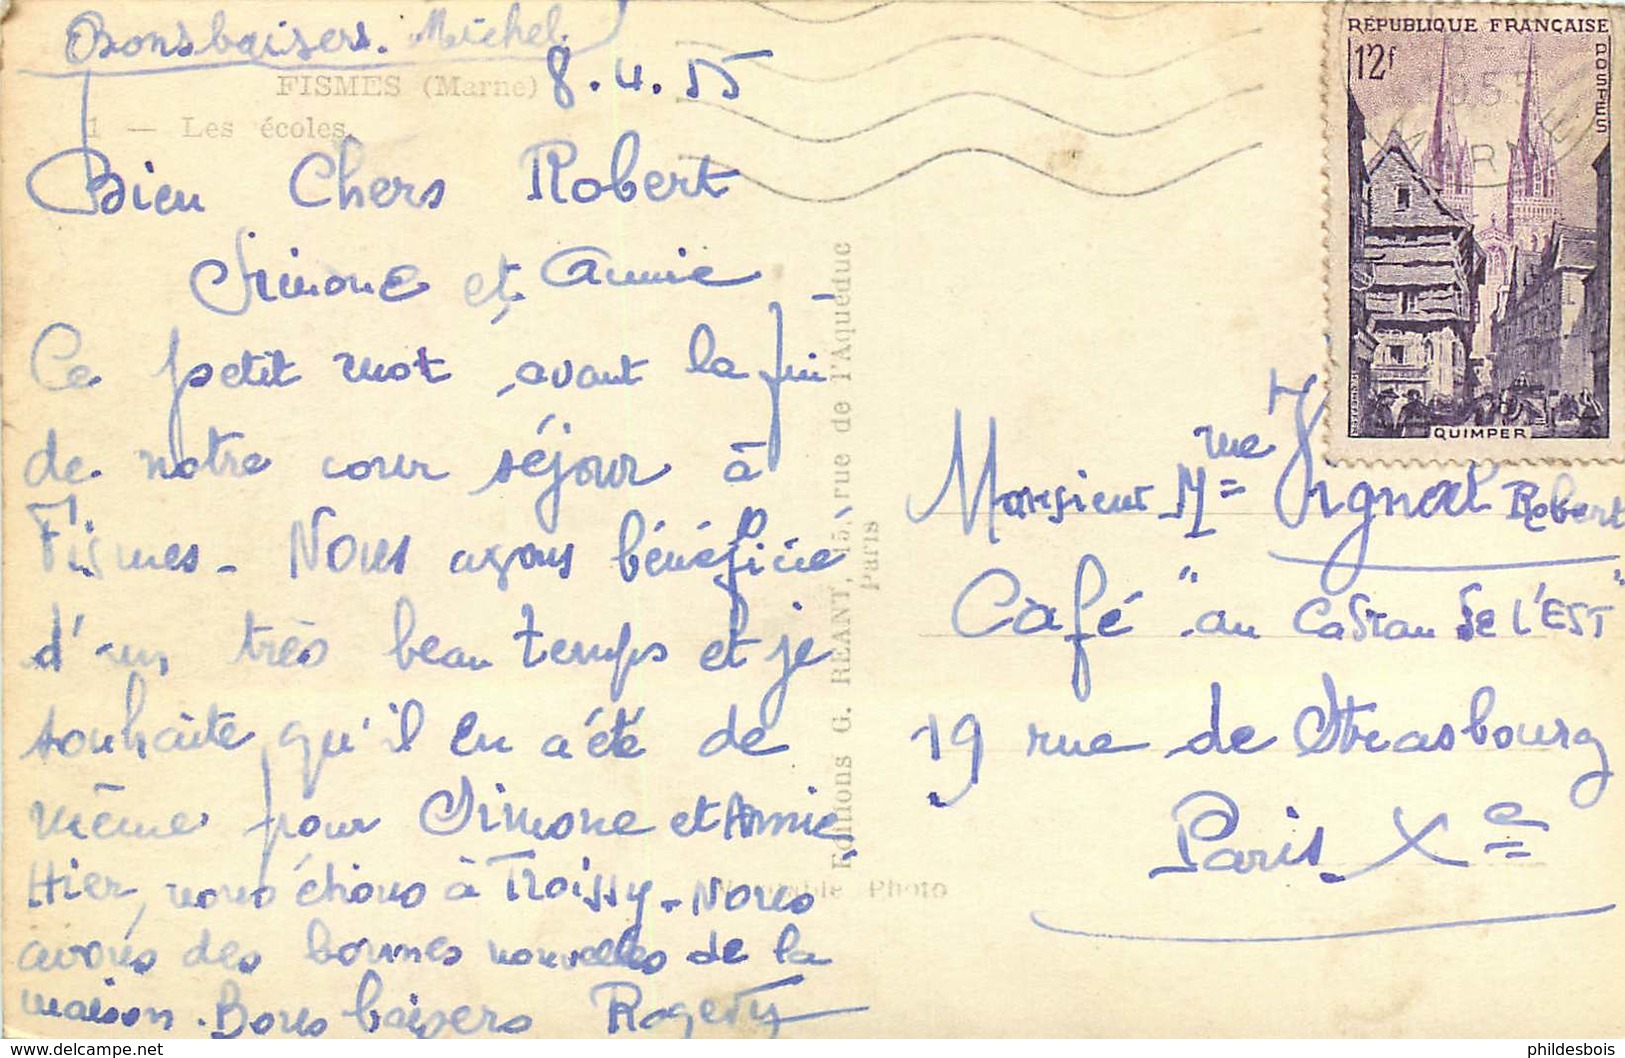 Bons baisers. Michel
FISMES (Marne)
8.4.55
1 — Les écoles.
Bien Chers Robert
Simone et Annie
Ce petit mot avant la fin
de notre cour séjour à
Fismes - Nous avons bénéficié
d'un très beau temps et je
souhaite qu'il en a été de
même pour Simone et Annie
Hier, nous étions à Troissy - Nous
avons des bonnes nouvelles de la
maison. Bons baisers
Editions G. REANT, 15, rue de l'Aqueduc
Paris
Véritable Photo
RÉPUBLIQUE FRANÇAISE
POSTES
12f
1955
MARNE
QUIMPER
Monsieur Mme Vignal Robert
Café "au Castau de L'EST"
19 rue de Strasbourg
Paris Xe
phildesbois
www.delcampe.net